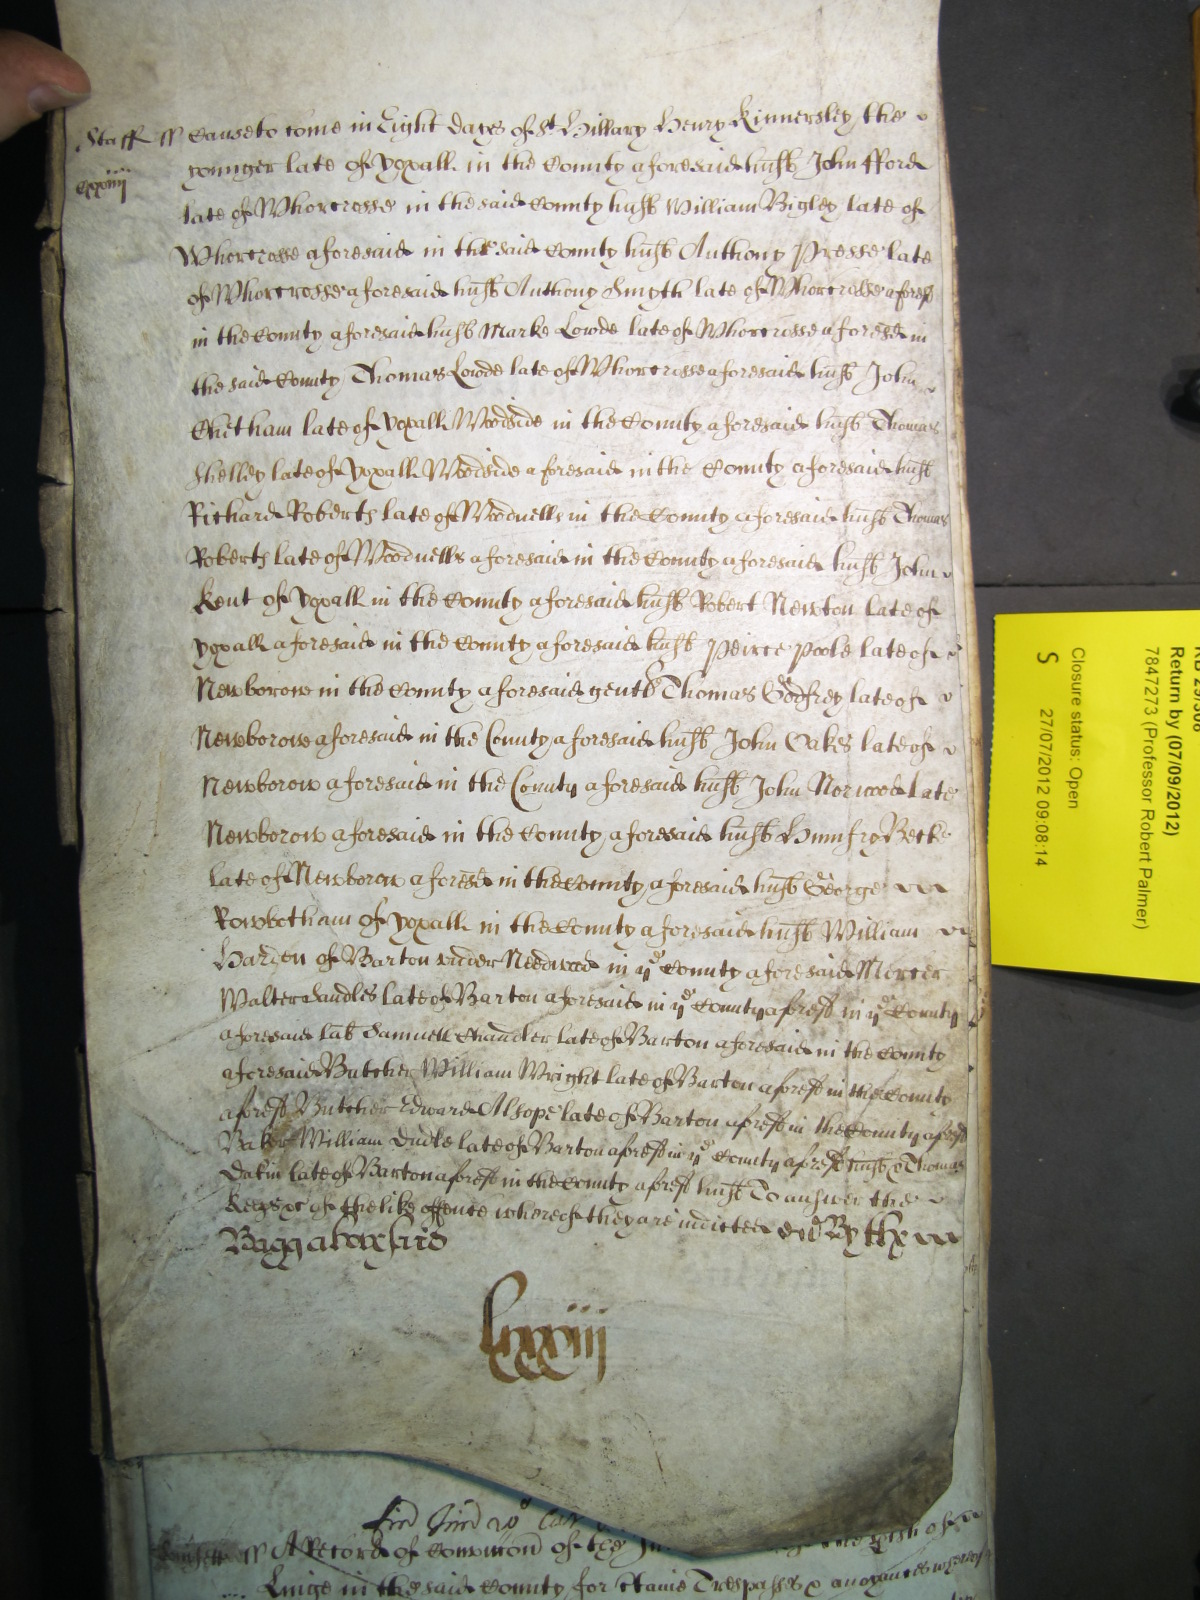 Staff ss Cause to come in Eight dayes of St Hillary Henry Kinnersley the
cxxiiij
younger late of Yoxall in the County aforesaid husb John fford
late of Whorcrosse in the said County husb William Bigley late of
Whorcrosse aforesaid in the said County husb Anthony Presse late
of Whorcrosse aforesaid husb Anthony Smyth late of Whorcrosse aforesd
in the County aforesaid husb Marke Lowde late of Whorcrosse aforesd in
the said County Thomas Lowde late of Whorcrosse aforesaid husb John
Chetham late of Yoxall Woodside in the County aforesaid husb Thomas
Shelley late of Yoxall Woodside aforesaid in the County aforesaid husb
Richard Roberts late of Woodnells in the County aforesaid husb Thomas
Roberts late of Woodnells aforesaid in the County aforesaid husb John
Kent of Yoxall in the County aforesaid husb Robert Newton late of
Yoxall aforesaid in the County aforesaid husb Peirce Poole late of
Newborow in the County aforesaid gent Thomas Godfrey late of
Newborow aforesaid in the County aforesaid husb John Oakes late of
Newborow aforesaid in the County aforesaid husb John Norwood late
Newborow aforesaid in the County aforesaid husb Humfry Becke
late of Newborow aforesd in the County aforesaid husb George
Rowbotham of Yoxall in the County aforesaid husb William
Harden of Barton under Needwood in ye County aforesaid Mercer
Walter Sandles late of Barton aforesaid in ye County aforesd in ye County
aforesaid lab Samuell Chandler late of Barton aforesaid in the County
aforesaid Butcher William Wright late of Barton aforesd in the County
aforesd Butcher Edward Alsope late of Barton aforesd in the County aforesd
Baker William Dudle late of Barton aforesd in ye County aforesd husb & Thomas
Dakin late of Barton aforesd in the County aforesd husb To answer the
Keeps &c of the like offence whereof they are indicted By the
lxxxiij
A Record of of the
Linge in the said County for Trespasses & anoyances whereof
Return by (07/09/2012)
7847273 (Professor Robert Palmer)
Closure status: Open
S 27/07/2012 09:08:14